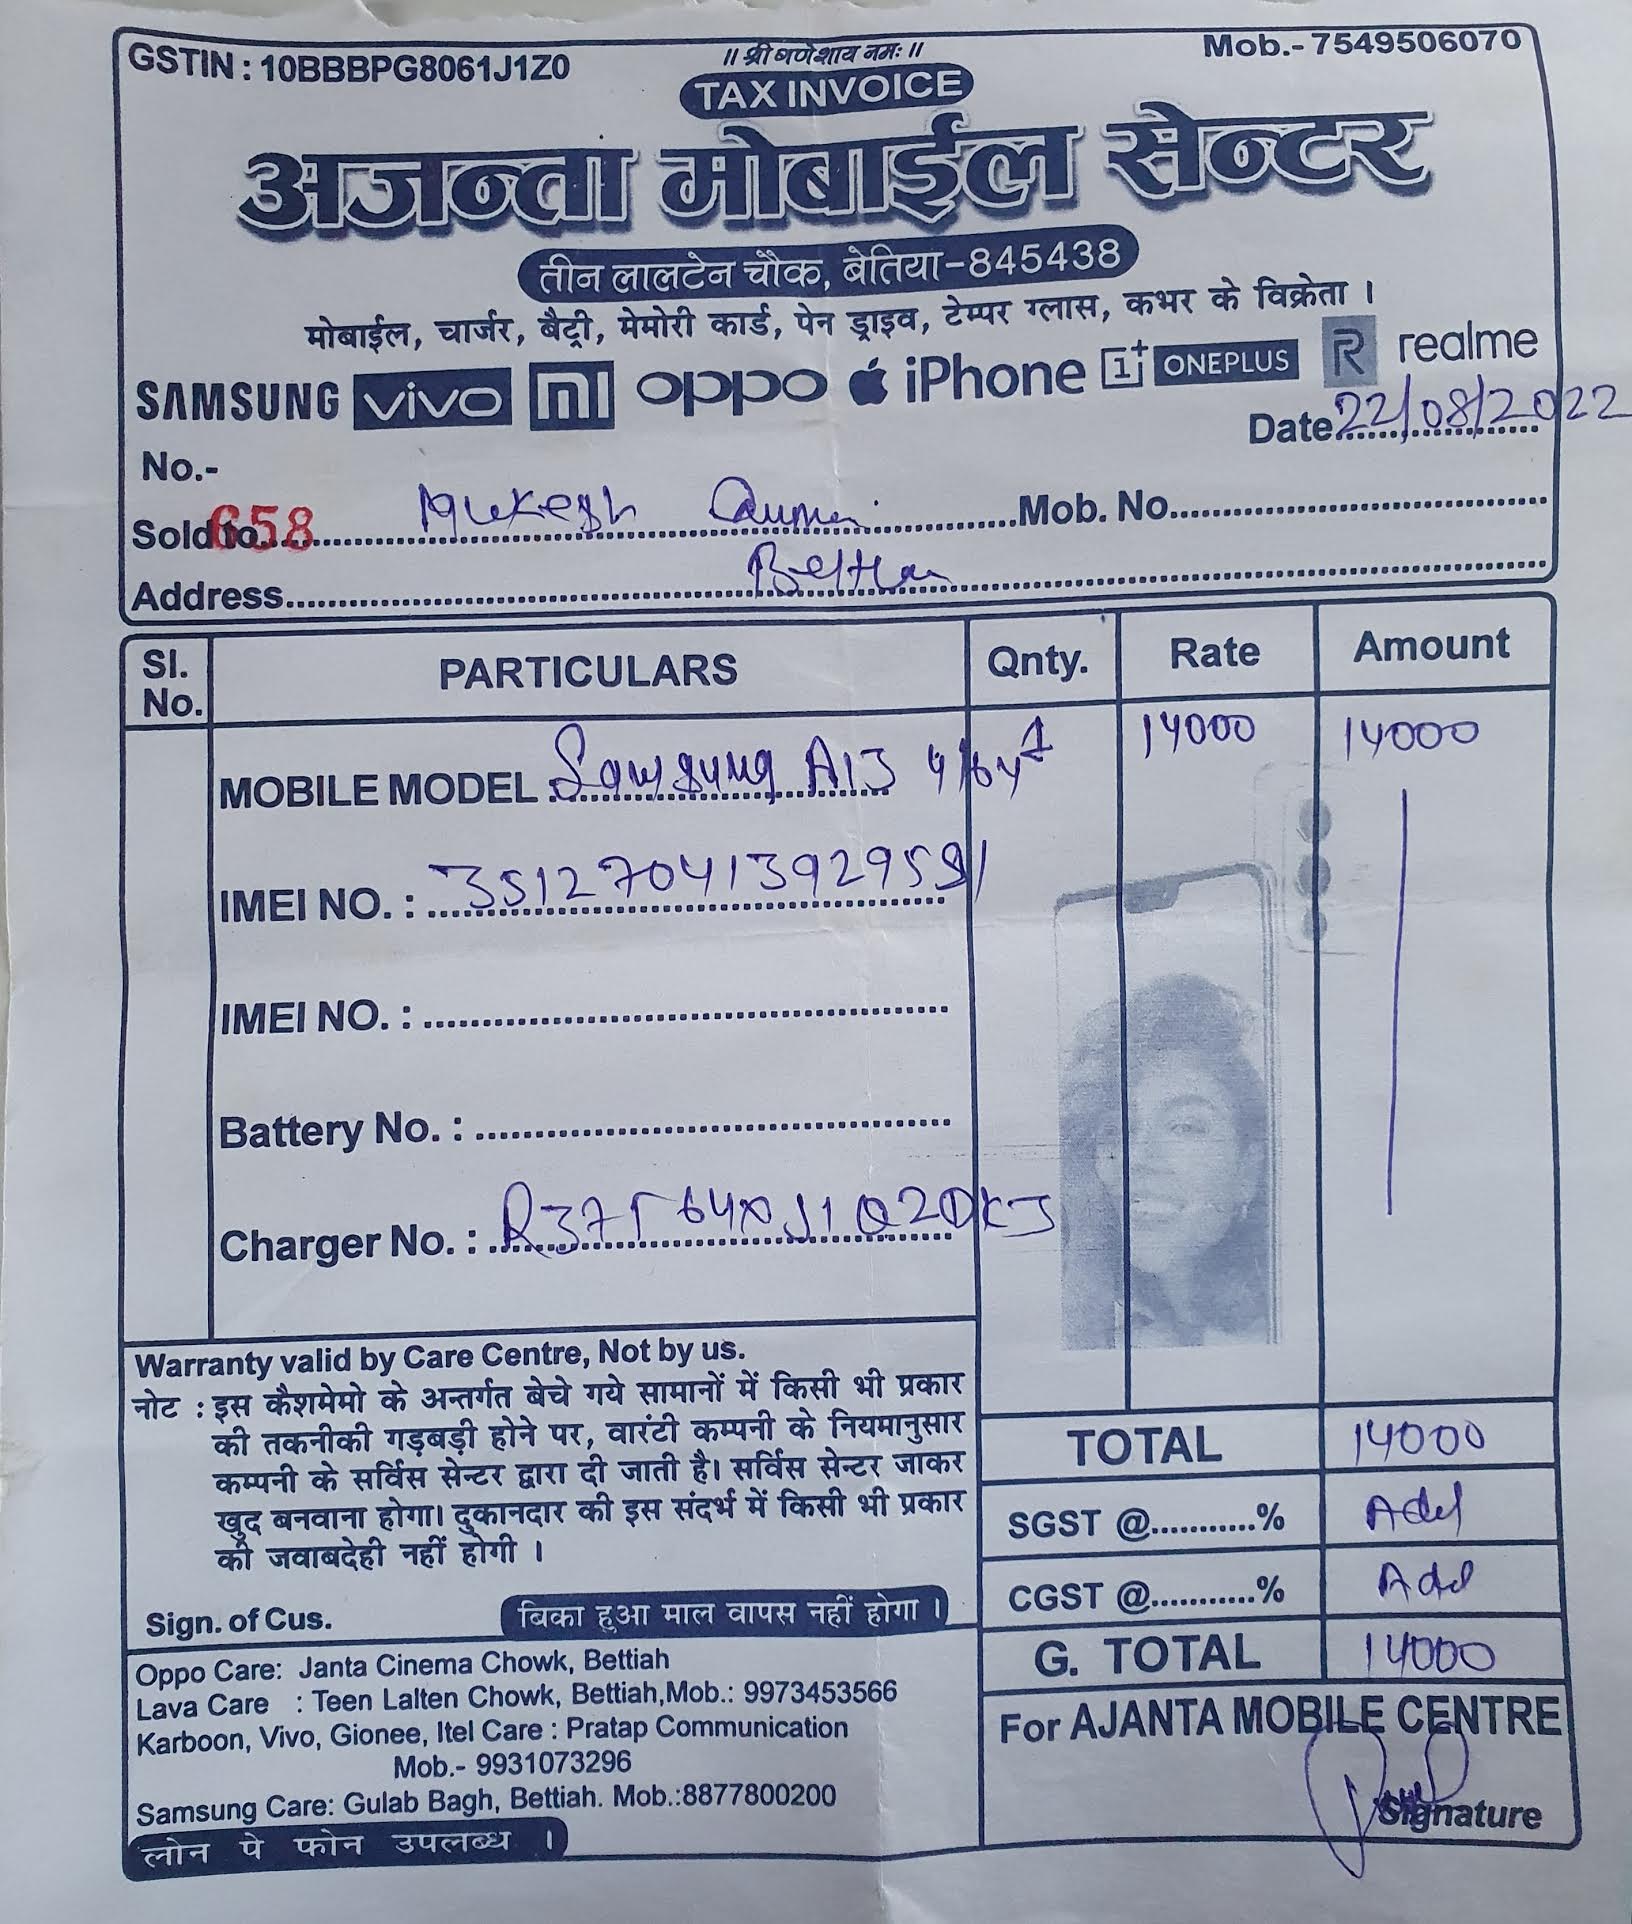 GSTIN : 10BBBPG8061J1Z0
॥ श्री गणेशाय नमः ॥
Mob.- 7549506070
TAX INVOICE
अजन्ता मोबाईल सेन्टर
तीन लालटेन चौक, बेतिया-845438
मोबाईल, चार्जर, बैट्री, मेमोरी कार्ड, पेन ड्राइव, टेम्पर ग्लास, कभर के विक्रेता ।
SAMSUNG vivo mi oppo iPhone 1+ ONEPLUS R realme
Date 22/08/2022
No.-
658
Sold to Mukesh Mob. No.
Address
Sl. No. PARTICULARS Qnty. Rate Amount
MOBILE MODEL Samsung A13 4/64 1 14000 14000
IMEI NO. :
IMEI NO. :
Battery No. :
Charger No. :
Warranty valid by Care Centre, Not by us.
नोट : इस कैशमेमो के अन्तर्गत बेचे गये सामानों में किसी भी प्रकार
की तकनीकी गड़बड़ी होने पर, वारंटी कम्पनी के नियमानुसार
कम्पनी के सर्विस सेन्टर द्वारा दी जाती है। सर्विस सेन्टर जाकर
खुद बनवाना होगा। दुकानदार की इस संदर्भ में किसी भी प्रकार
की जवाबदेही नहीं होगी ।
Sign. of Cus.
बिका हुआ माल वापस नहीं होगा ।
TOTAL 14000
SGST @............%
CGST @............%
G. TOTAL 14000
Oppo Care: Janta Cinema Chowk, Bettiah
Lava Care : Teen Lalten Chowk, Bettiah,Mob.: 9973453566
Karboon, Vivo, Gionee, Itel Care : Pratap Communication
Mob.- 9931073296
Samsung Care: Gulab Bagh, Bettiah. Mob.:8877800200
लोन पे फोन उपलब्ध ।
For AJANTA MOBILE CENTRE
Signature